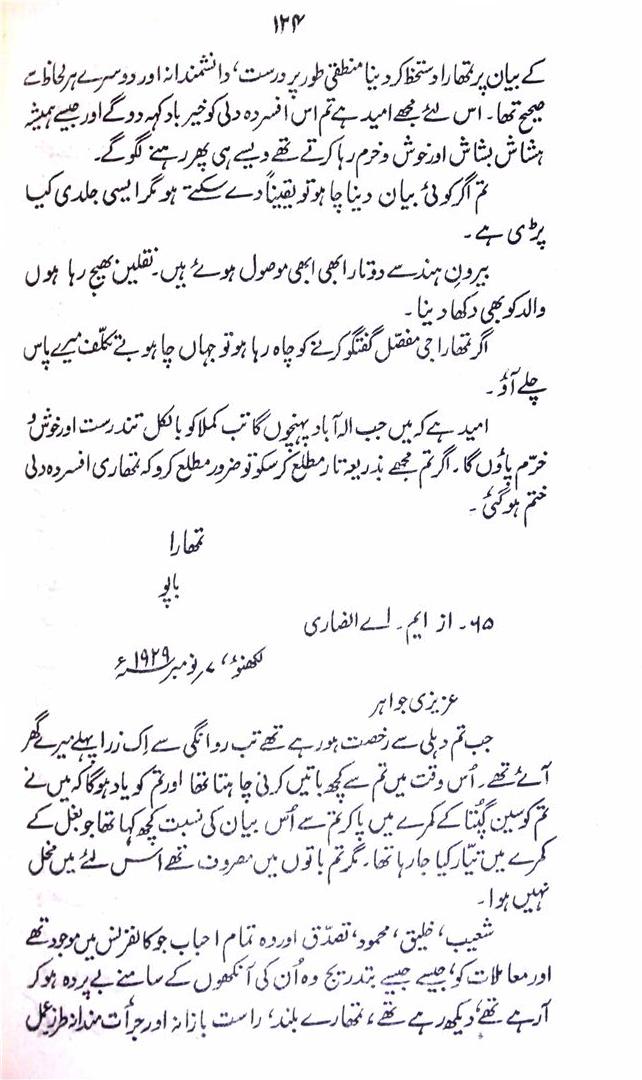 ۱۳۴
کے بیان پر تمھارا دستخط کر دینا منطقی طور پر درست، دانشمندانہ اور دوسرے ہر لحاظ سے
صحیح تھا۔ اس لئے مجھے امید ہے تم اس افسردہ دلی کو خیر باد کہہ دو گے اور جیسے ہمیشہ
ہشاش بشاش اور خوش و خرم رہا کرتے تھے ویسے ہی پھر رہنے لگو گے۔
تم اگر کوئی بیان دینا چاہو تو یقیناً دے سکتے ہو مگر ایسی جلدی کیا
پڑی ہے۔
بیرونِ ہند سے دو تار ابھی ابھی موصول ہوئے ہیں۔ نقلیں بھیج رہا ہوں
والد کو بھی دکھا دینا۔
اگر تمھارا جی مفصّل گفتگو کرنے کو چاہ رہا ہو تو جہاں چاہو بے تکلّف میرے پاس
چلے آؤ۔
امید ہے کہ میں جب الہ آباد پہنچوں گا تب کملا کو بالکل تندرست اور خوش و
خرّم پاؤں گا۔ اگر تم مجھے بذریعہ تار مطلع کر سکو تو ضرور مطلع کرو کہ تمھاری افسردہ دلی
ختم ہو گئی۔
تمھارا
باپو
۶۵۔ از ایم۔ اے انصاری
لکھنؤ، ۷؍ نومبر ۱۹۲۹ء
عزیزی جواہر
جب تم دہلی سے رخصت ہو رہے تھے تب روانگی سے اِک ذرا پہلے میرے گھر
آئے تھے۔ اُس وقت میں تم سے کچھ باتیں کرنی چاہتا تھا اور تم کو یاد ہوگا کہ میں نے
تم کو سین گپتا کے کمرے میں پا کر تم سے اُس بیان کی نسبت کچھ کہا تھا جو بغل کے
کمرے میں تیّار کیا جا رہا تھا۔ مگر تم باتوں میں مصروف تھے اس لئے میں مخل
نہیں ہوا۔
شعیب، خلیق، محمود، تصدّق اور وہ تمام احباب جو کانفرنس میں موجود تھے
اور معاملات کو، جیسے جیسے بتدریج وہ اُن کی آنکھوں کے سامنے بے پردہ ہو کر
آ رہے تھے، دیکھ رہے تھے، تمھارے بلند، راست بازانہ اور جرأت مندانہ طرزِ عمل